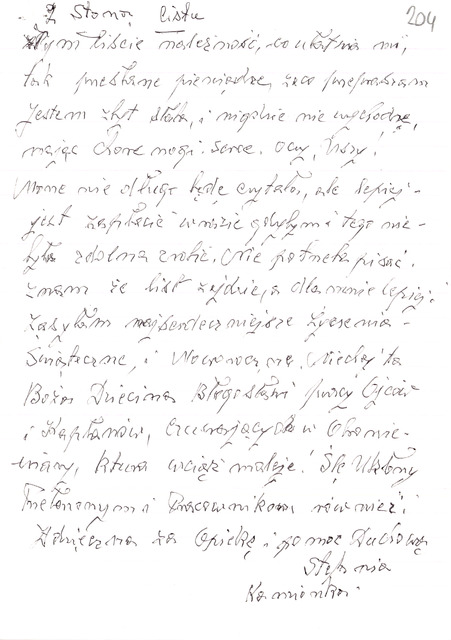 Z Stoną listu 204
Tym liście należność, co ułatwia mi,
tak przesłane pieniądze, za co przepraszam
Jestem zbyt słaba, i nigdzie nie wychodzę,
mając chore nogi. Serce. Oczy, Uszy!
Może nie długo będę czytała, ale lepiej-
jest zapłacić w razie gdybym i tego nie-
była zdolna zrobić. Nie potrzeba pisać.
Znam że list dojdzie, a dla mnie lepiej.
Zasyłam najserdeczniejsze życzenia-
Świąteczne, i Noworoczne, Niechaj ta
Boża Dziecina Błogosławi pracy Ojców
i Kapłanów, czuwających w Obronie-
wiary, która wciąż maleje! Ślę Ukłony
Przełożonym i Pracownikom również!
Wdzięczna za Opiekę i pomoc Duchową
Stefania
Kamionka